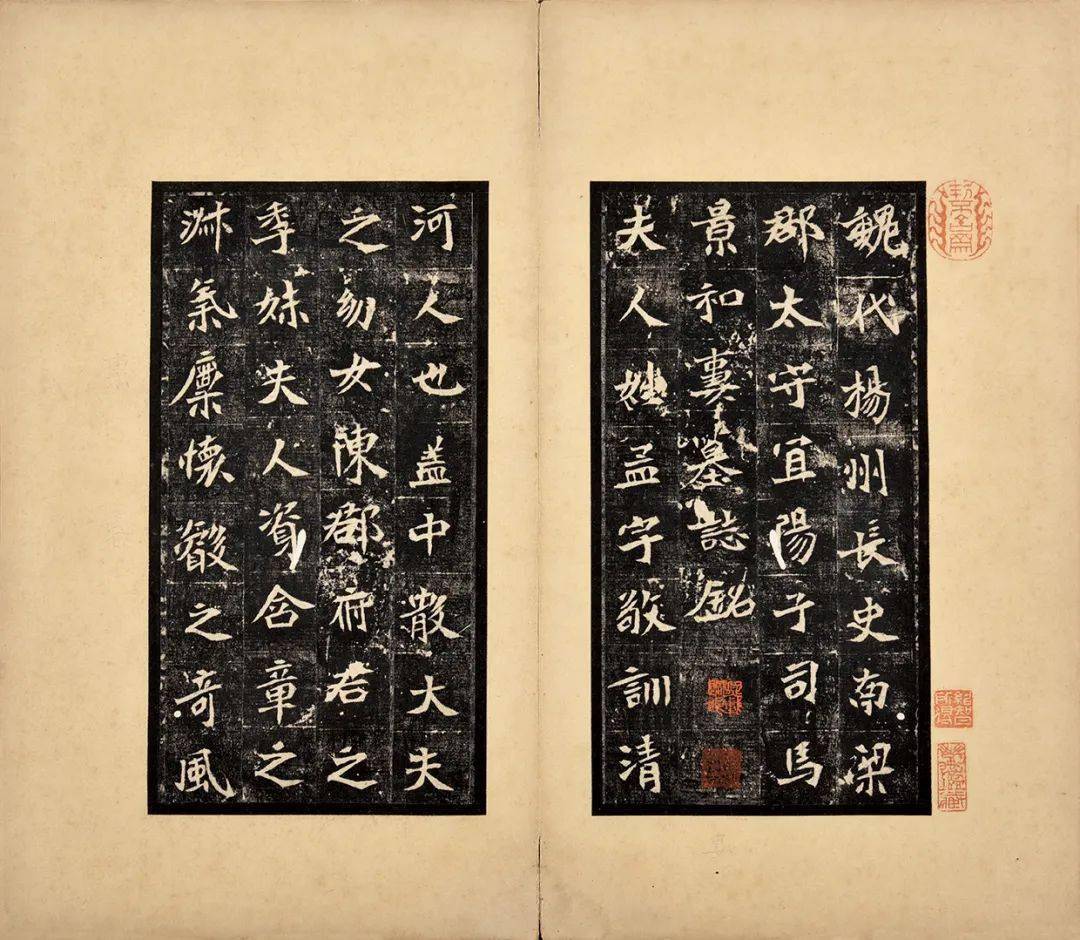 魏代楊州長史南梁
郡太守宜陽子司馬
景和妻墓誌銘
夫人姓孟字敬訓清
河人也蓋中散大夫
之幼女陳郡府君之
季妹夫人資含章之
淑氣稟懷叡之奇風